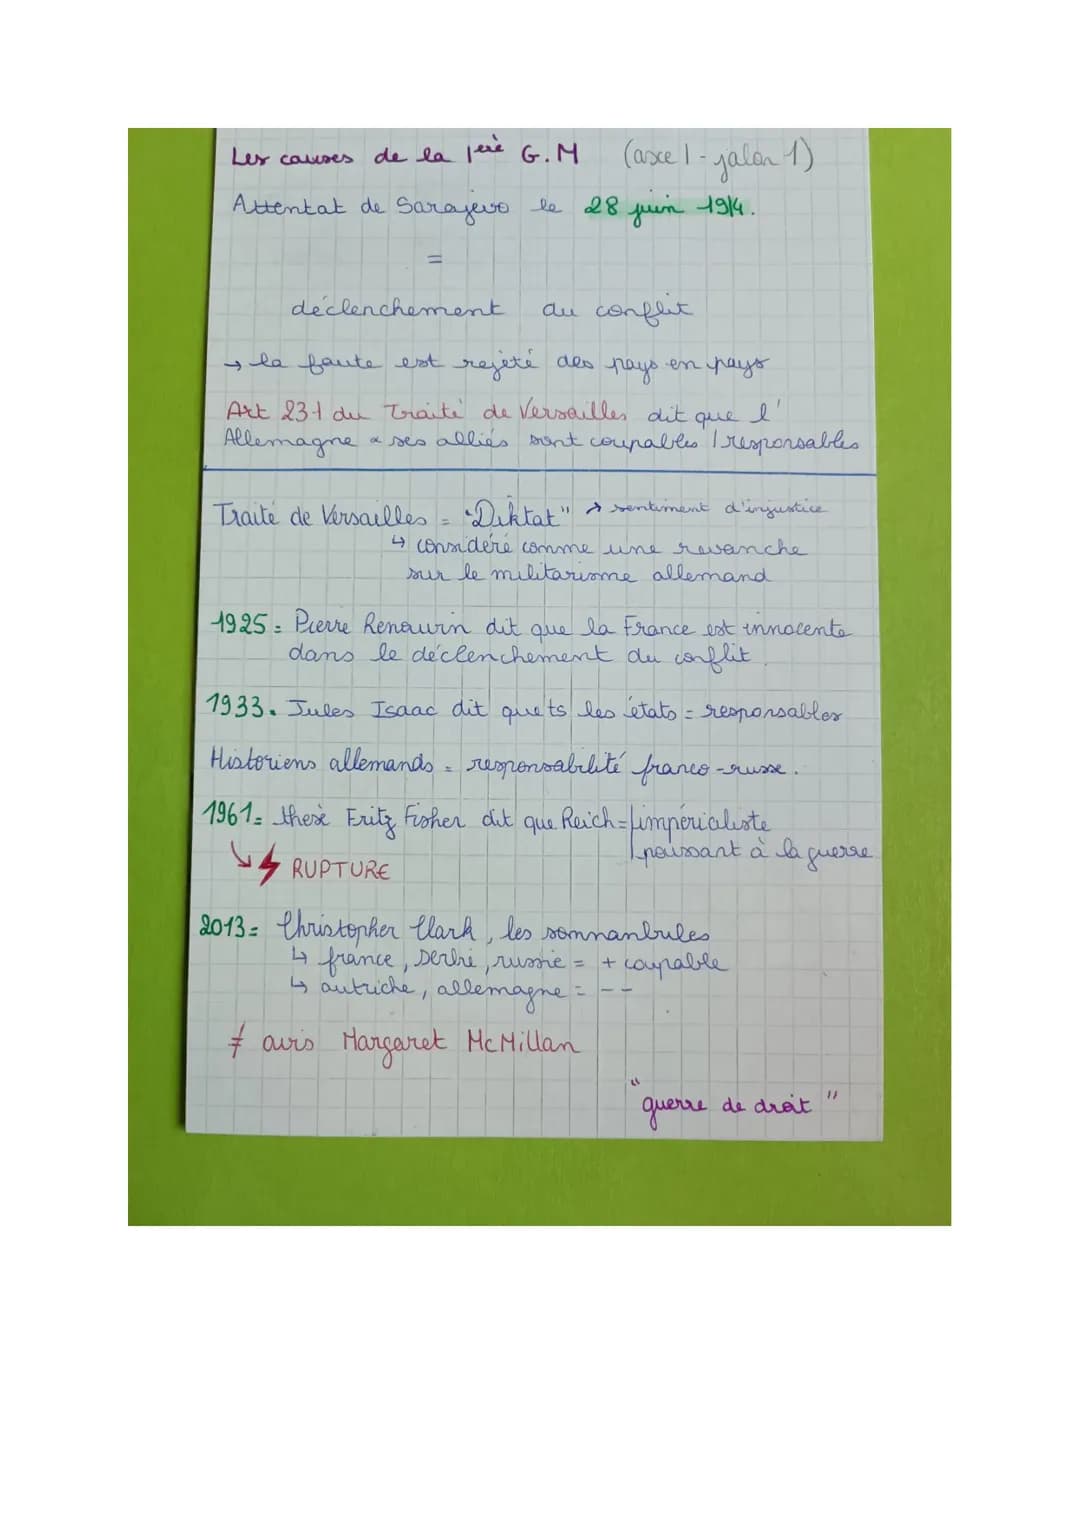 Les causes de la 1erè G.M (axe 1 - jalon 1)
Attentat de Sarajevo le 28 juin 1914.
=
déclenchement du conflit
→ la faute est rejeté des pays en pays
Art 231 du Traité de Versailles dit que l'
Allemagne & ses alliés sont coupables / responsables
Traité de Versailles = "Diktat" → sentiment d'injustice
↳ considéré comme une revanche
sur le militarisme allemand
1925 = Pierre Renouvin dit que la France est innocente
dans le déclenchement du conflit.
1933 = Jules Isaac dit que ts les états = responsables
Historiens allemands = responsabilité franco-russe.
1961 = thesè Fritz Fisher dit que Reich = impérialiste
poussant à la guerre
↳ RUPTURE
2013 = Christopher Clark, les somnanbules
↳ france, serbie, russie = + coupable
↳ autriche, allemagne = --
≠ avis Margaret McMillan
"guerre de droit"